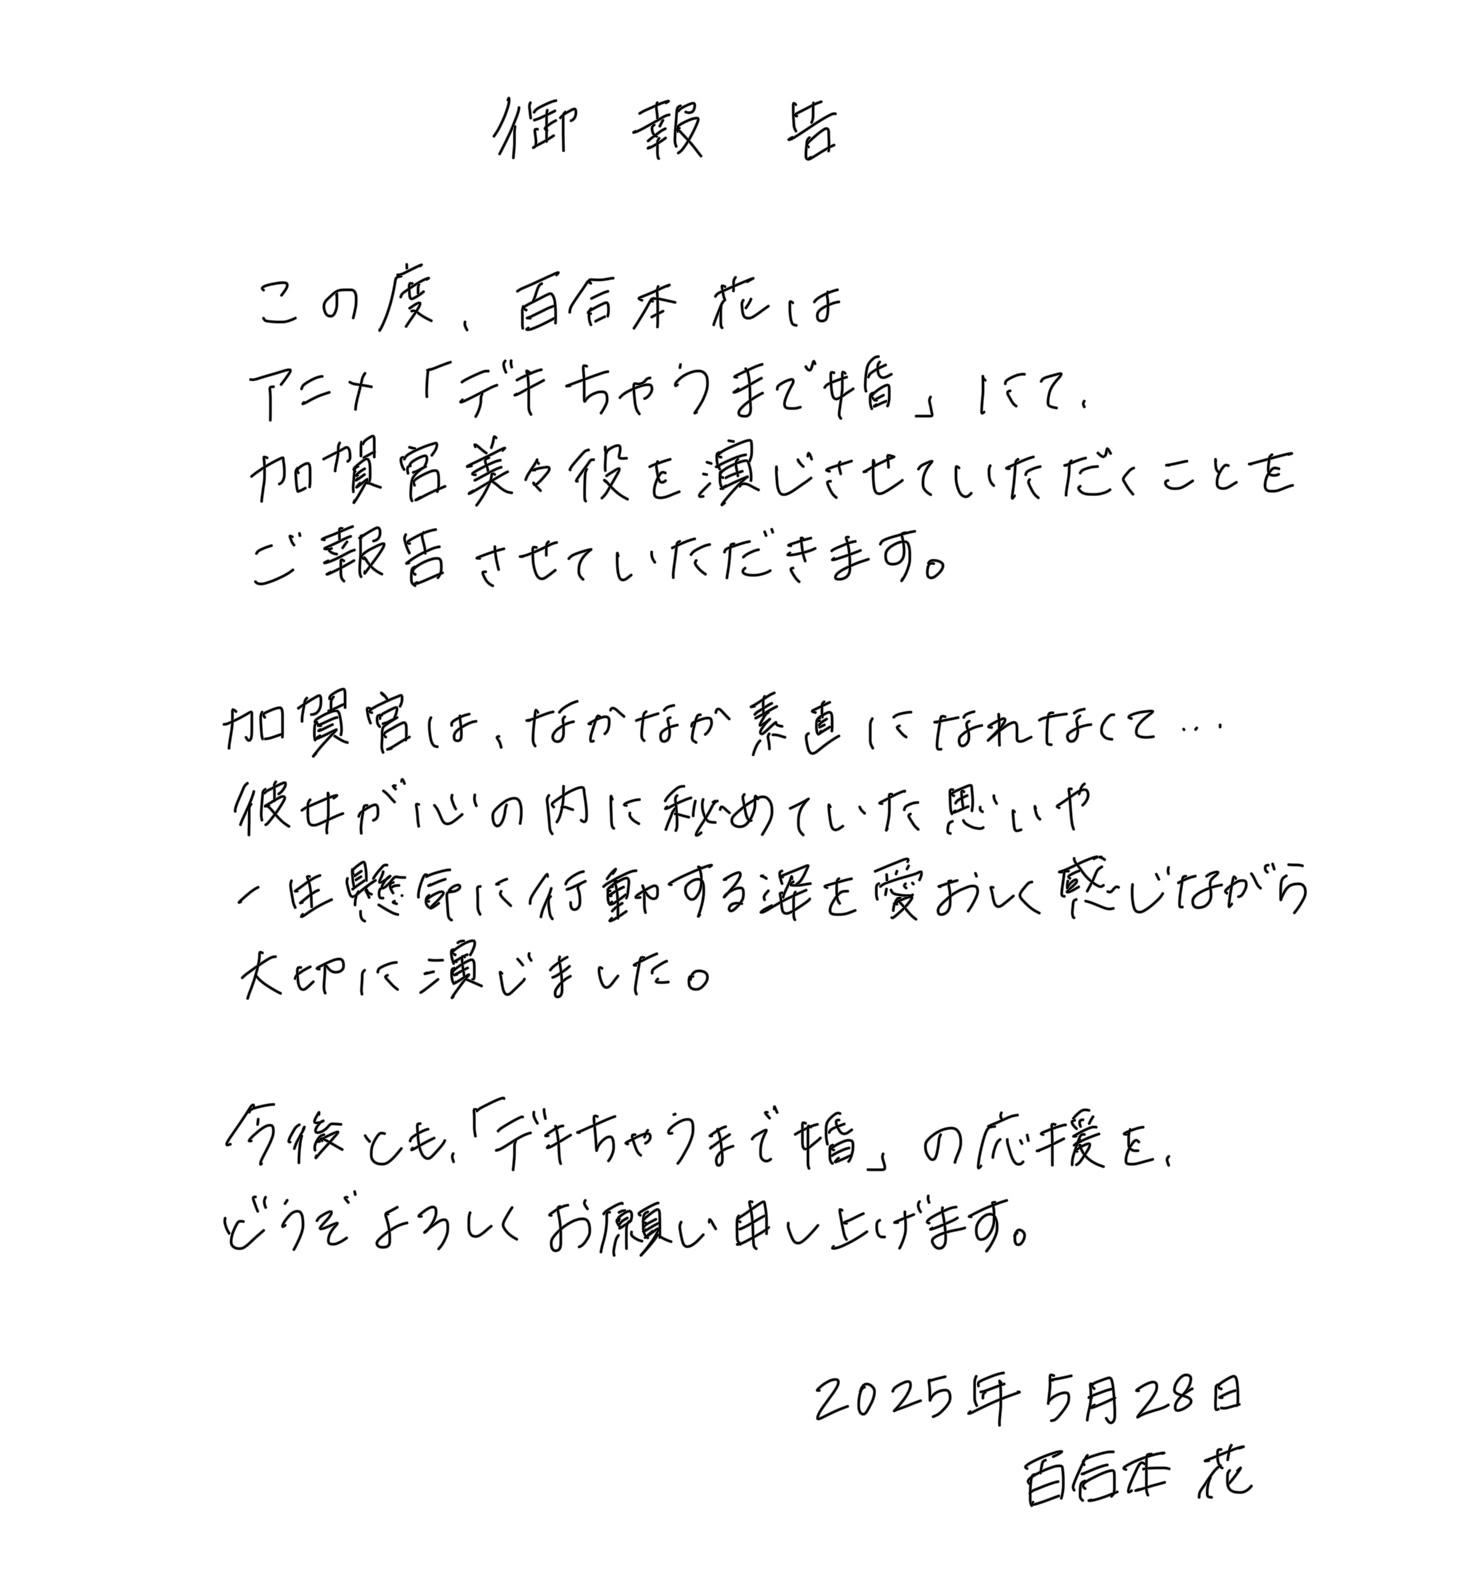 御報告
この度、百合本 花は
アニメ「デキちゃうまで婚」にて、
加賀宮美々役を演じさせていただくことを
ご報告させていただきます。
加賀宮は、なかなか素直になれなくて…
彼女が心の内に秘めていた思いや
一生懸命に行動する姿を愛おしく感じながら
大切に演じました。
今後とも、「デキちゃうまで婚」の応援を、
どうぞよろしくお願い申し上げます。
2025年5月28日
百合本 花